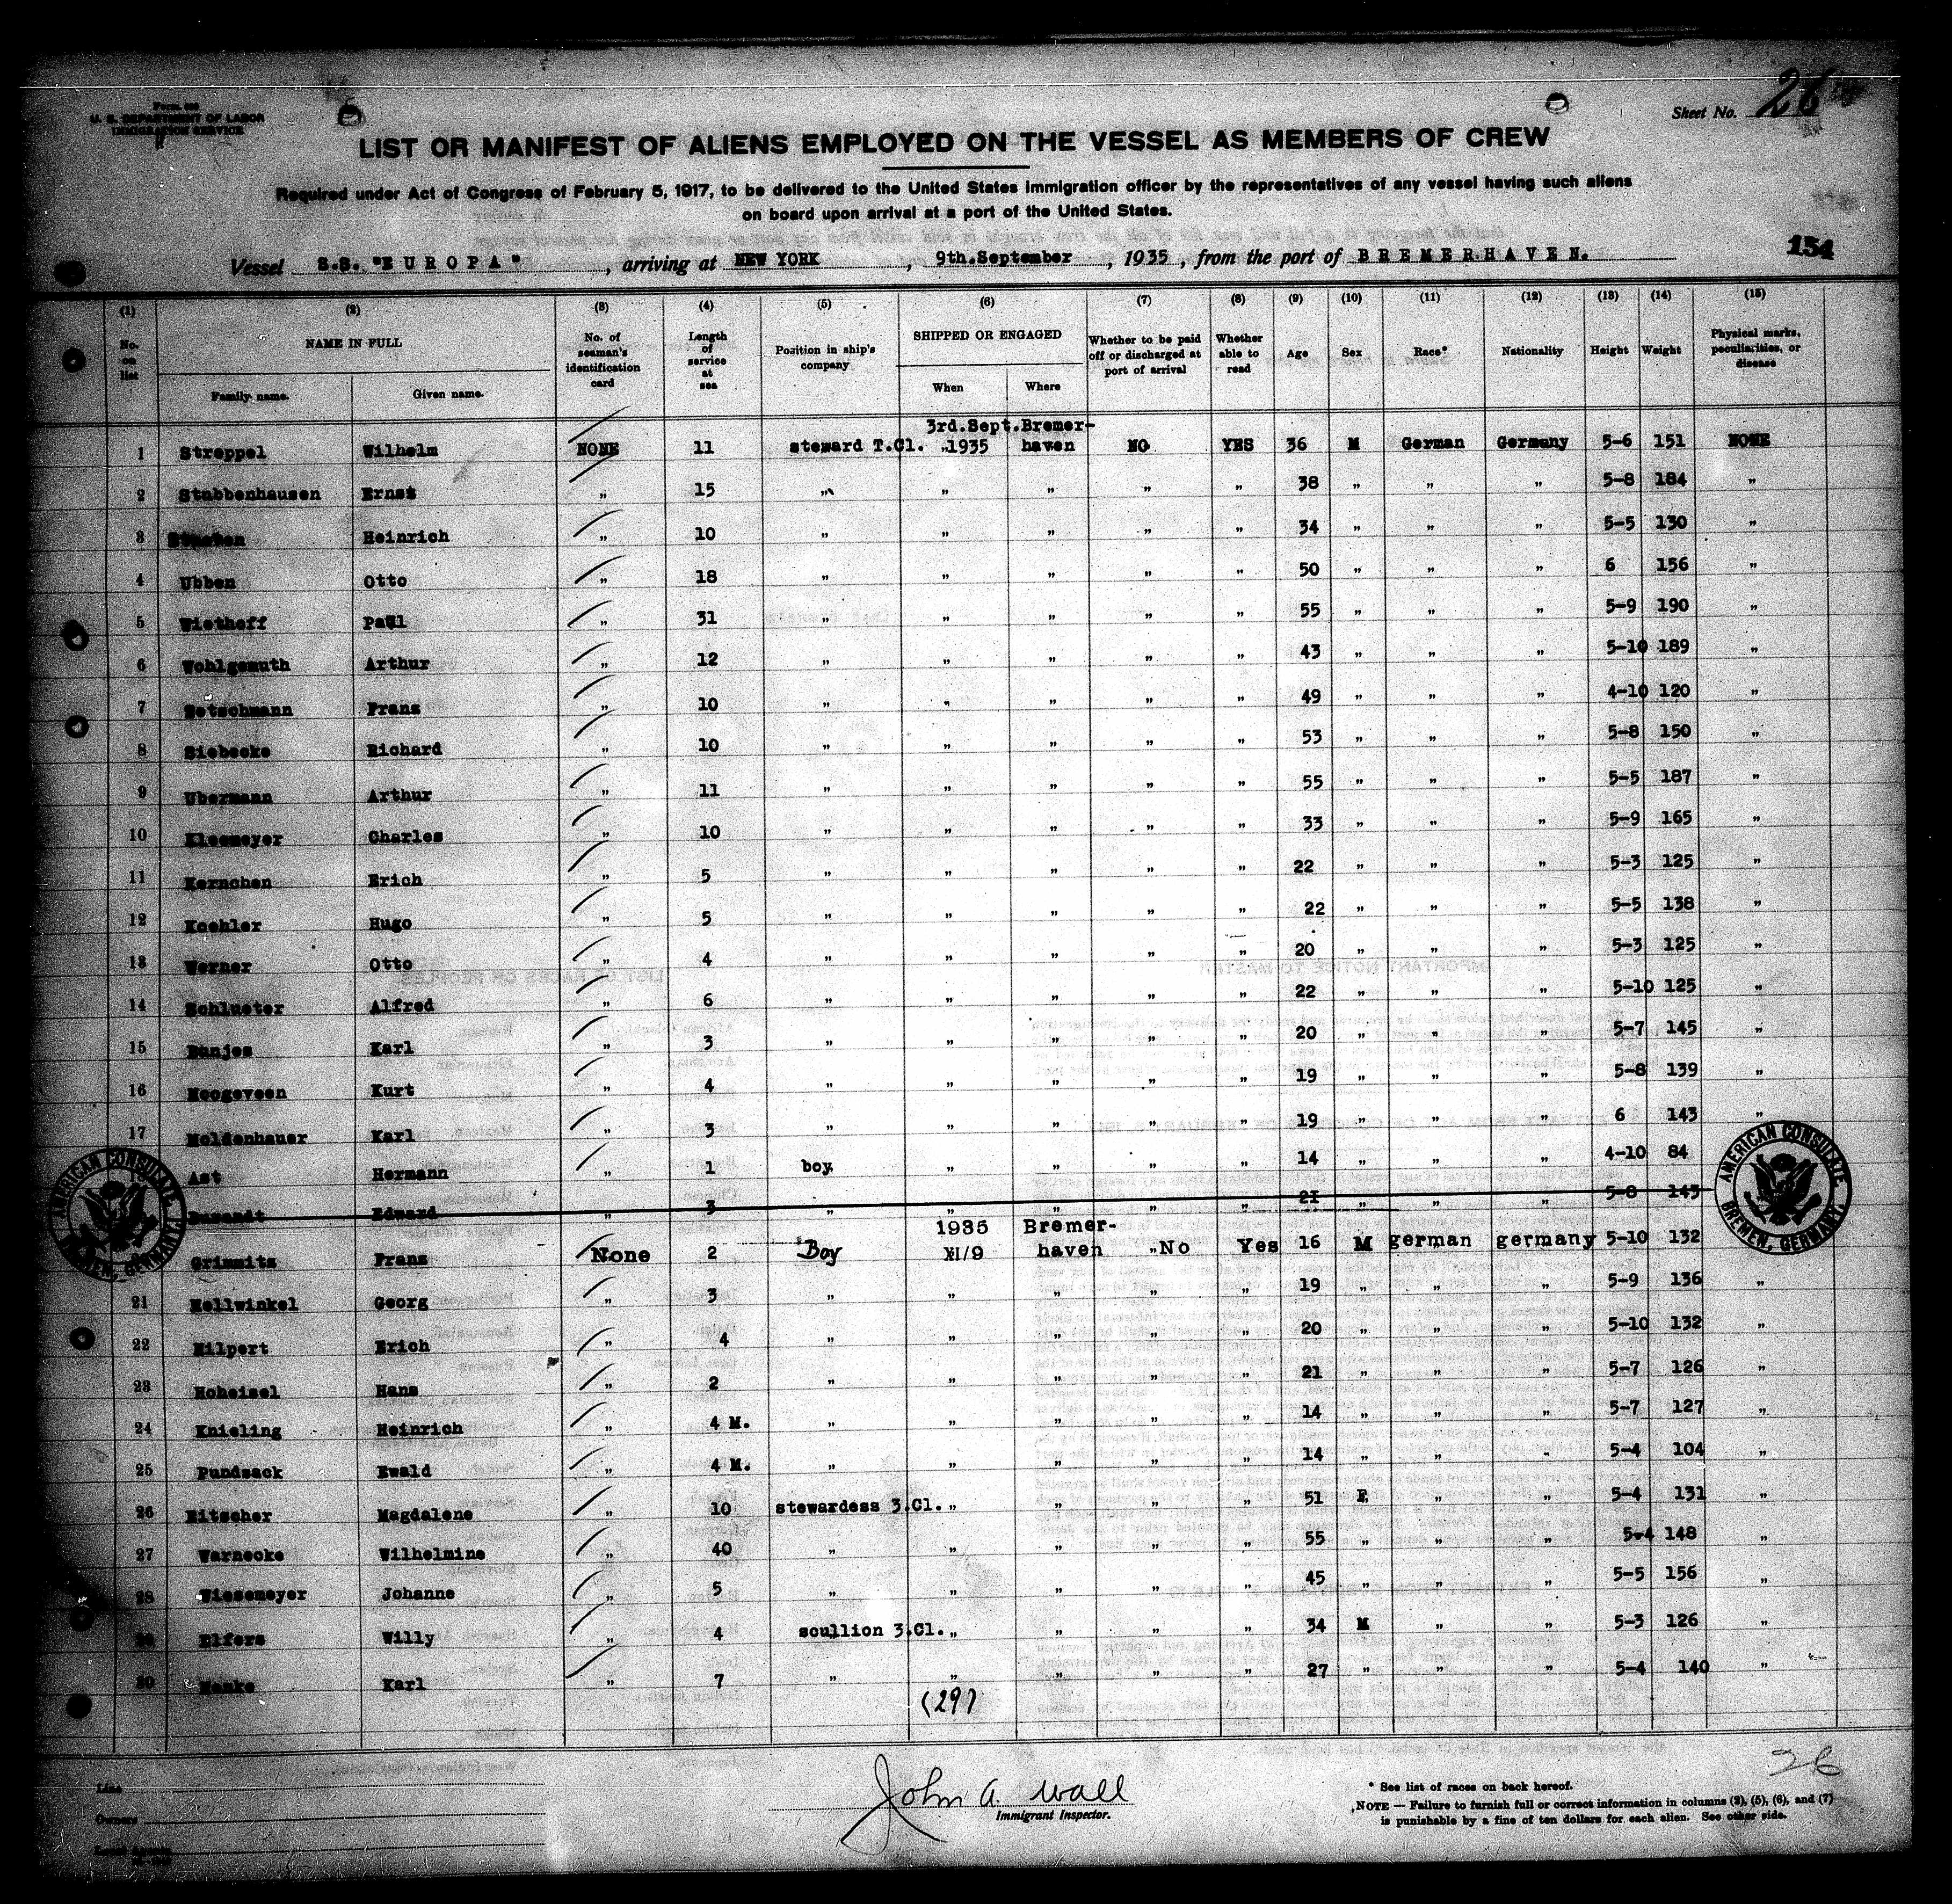 Form 680
U. S. DEPARTMENT OF LABOR
IMMIGRATION SERVICE
Sheet No. 26
LIST OR MANIFEST OF ALIENS EMPLOYED ON THE VESSEL AS MEMBERS OF CREW
Required under Act of Congress of February 5, 1917, to be delivered to the United States immigration officer by the representatives of any vessel having such aliens
on board upon arrival at a port of the United States.
154
Vessel S.S. "EUROPA", arriving at NEW YORK, 9th.September, 1935, from the port of BREMERHAVEN.
(1) (2) (3) (4) (5) (6) (7) (8) (9) (10) (11) (12) (13) (14) (15)
No. on list NAME IN FULL Family name. Given name. No. of seaman's identification card Length of service at sea Position in ship's company SHIPPED OR ENGAGED When Where Whether to be paid off or discharged at port of arrival Whether able to read Age Sex Race* Nationality Height Weight Physical marks, peculiarities, or disease
3rd.Sept. Bremer-
1 Streppel Wilhelm NONE 11 steward T.Cl. 1935 haven NO YES 36 M German Germany 5-6 151 NONE
2 Stubbenhausen Ernst " 15 " " " " " 38 " " " 5-8 184 "
3 Heinrich " 10 " " " " " 34 " " " 5-5 130 "
4 Ubben Otto " 18 " " " " " 50 " " " 6 156 "
5 Wiethoff Paul " 31 " " " " " 55 " " " 5-9 190 "
6 Wohlgemuth Arthur " 12 " " " " " 43 " " " 5-10 189 "
7 Zetschmann Franz " 10 " " " " " 49 " " " 4-10 120 "
8 Siebecke Richard " 10 " " " " " 53 " " " 5-8 150 "
9 Ubermann Arthur " 11 " " " " " 55 " " " 5-5 187 "
10 Kleemeyer Charles " 10 " " " " " 33 " " " 5-9 165 "
11 Kernchen Erich " 5 " " " " " 22 " " " 5-3 125 "
12 Koehler Hugo " 5 " " " " " 22 " " " 5-5 138 "
13 Werner Otto " 4 " " " " " 20 " " " 5-3 125 "
14 Schlueter Alfred " 6 " " " " " 22 " " " 5-10 125 "
15 Bunjes Karl " 3 " " " " " 20 " " " 5-7 145 "
16 Hoogeveen Kurt " 4 " " " " " 19 " " " 5-8 139 "
17 Moldenhauer Karl " 3 " " " " " 19 " " " 6 143 "
Ast Hermann " 1 boy " " " " 14 " " " 4-10 84
Edward " 3 " " " " " 21 " " " 5-8 143
1935 Bremer-
Grimmitz Franz None 2 Boy XI/9 haven No Yes 16 M german germany 5-10 132
21 Hellwinkel Georg " 3 " " " " " 19 " " " 5-9 136 "
22 Hilpert Erich " 4 " " " " " 20 " " " 5-10 132 "
23 Hoheisel Hans " 2 " " " " " 21 " " " 5-7 126 "
24 Knieling Heinrich " 4 M. " " " " " 14 " " " 5-7 127 "
25 Pundsack Ewald " 4 M. " " " " " 14 " " " 5-4 104 "
26 Ritscher Magdalene " 10 stewardess 3.Cl. " " " " 51 F " " 5-4 131 "
27 Warnecke Wilhelmine " 40 " " " " " 55 " " " 5-4 148 "
28 Wiesemeyer Johanne " 5 " " " " " 45 " " " 5-5 156 "
29 Elfers Willy " 4 scullion 3.Cl. " " " " 34 M " " 5-3 126 "
30 Hanke Karl " 7 " " " " " 27 " " " 5-4 140 "
(29)
AMERICAN CONSULATE BREMEN, GERMANY.
AMERICAN CONSULATE BREMEN, GERMANY.
26
Line
Owners
John A. Wall
Immigrant Inspector.
* See list of races on back hereof.
NOTE — Failure to furnish full or correct information in columns (2), (5), (6), and (7)
is punishable by a fine of ten dollars for each alien. See other side.